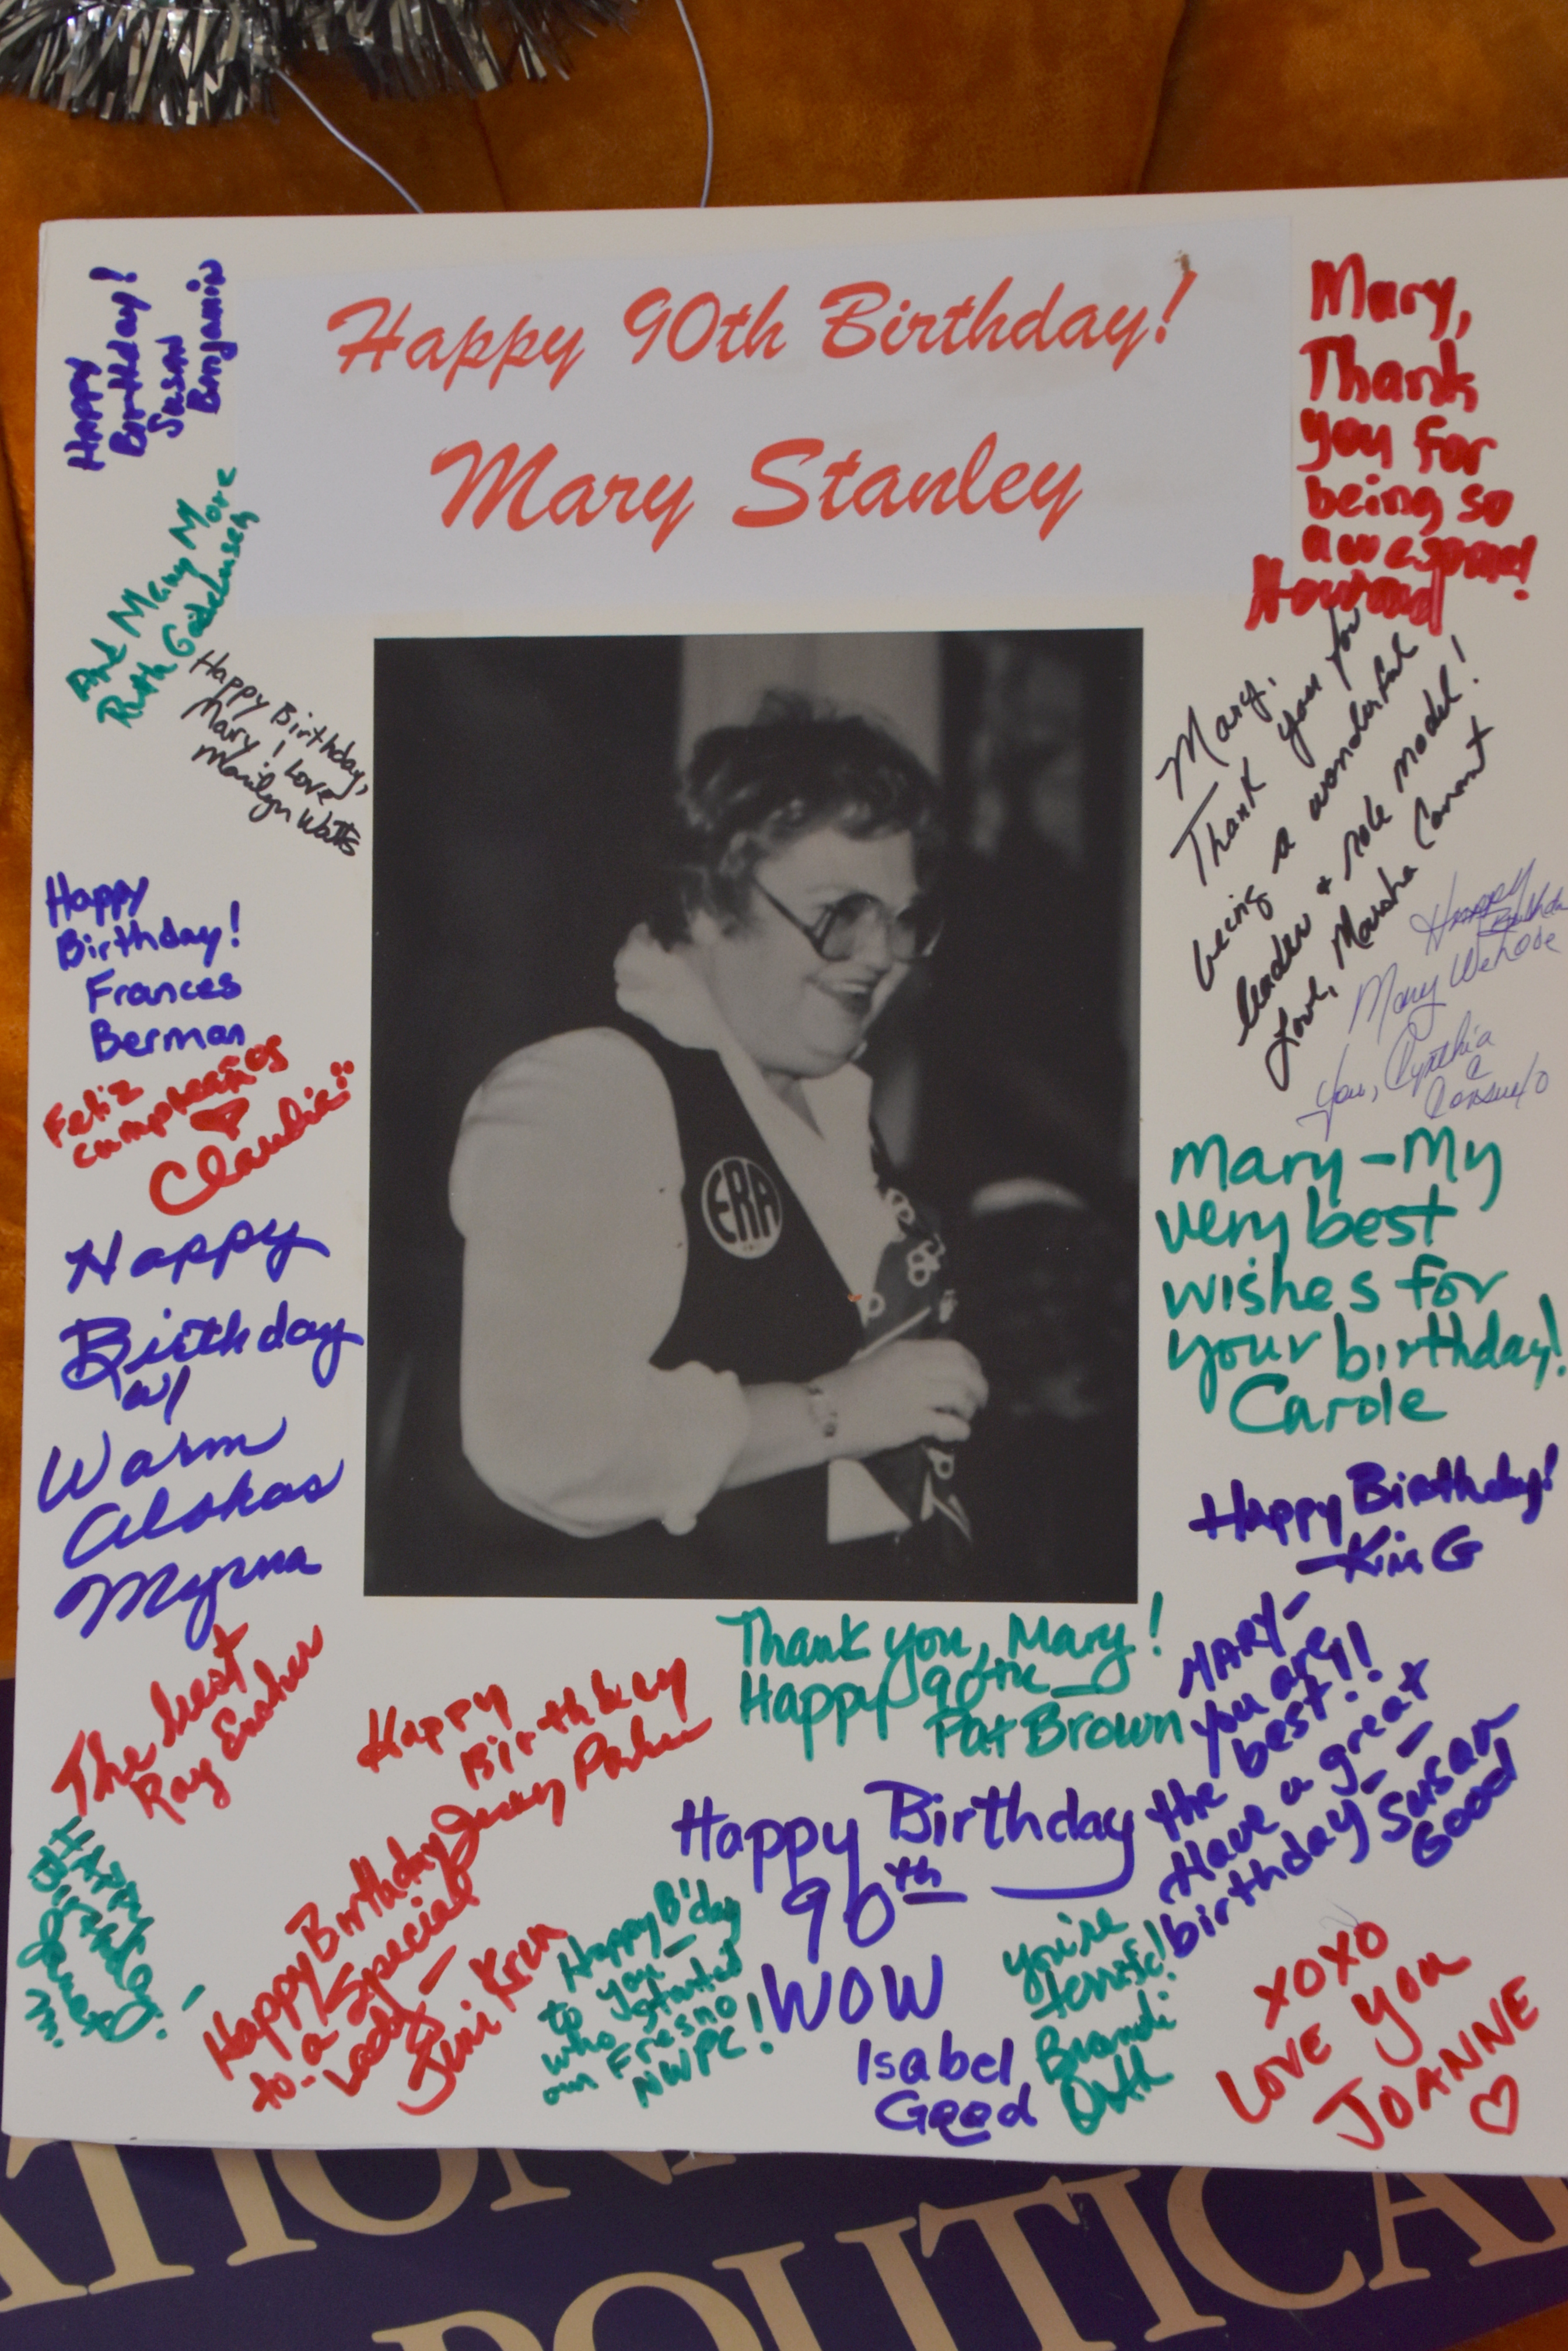 Happy 90th Birthday!
Mary Stanley
Happy
Birthday!
Susan
Benjamin
And Many More
Ruth
Happy Birthday,
Mary! Love
Marilyn Watts
Happy
Birthday!
Frances
Berman
Feliz
cumpleaños
Claudia
Happy
Birthday
w/
Warm
Myrna
The best
Ray
Mary,
Thank
you for
being so
awesome!
Howard
Mary,
Thank you for
being a wonderful
leader + role model!
Love, Marsha Conant
Happy
Mary We love
you, Cynthia
Consuelo
ERA
Mary - My
very best
wishes for
your birthday!
Carole
Happy Birthday!
- Kim G
Thank you, Mary!
Happy 90th
Pat Brown
MARY -
you are
the best!!
Have a great
birthday -
Susan
Good
Happy
Birthday
Happy Birthday
to a Special
Lady -
Happy B'day
to you -
who started
our Fresno
NWPC!
Happy Birthday
90th
WOW
Isabel
Good
you're
terrific!
Brandi
Orth
XOXO
LOVE you
JOANNE
POLITICA